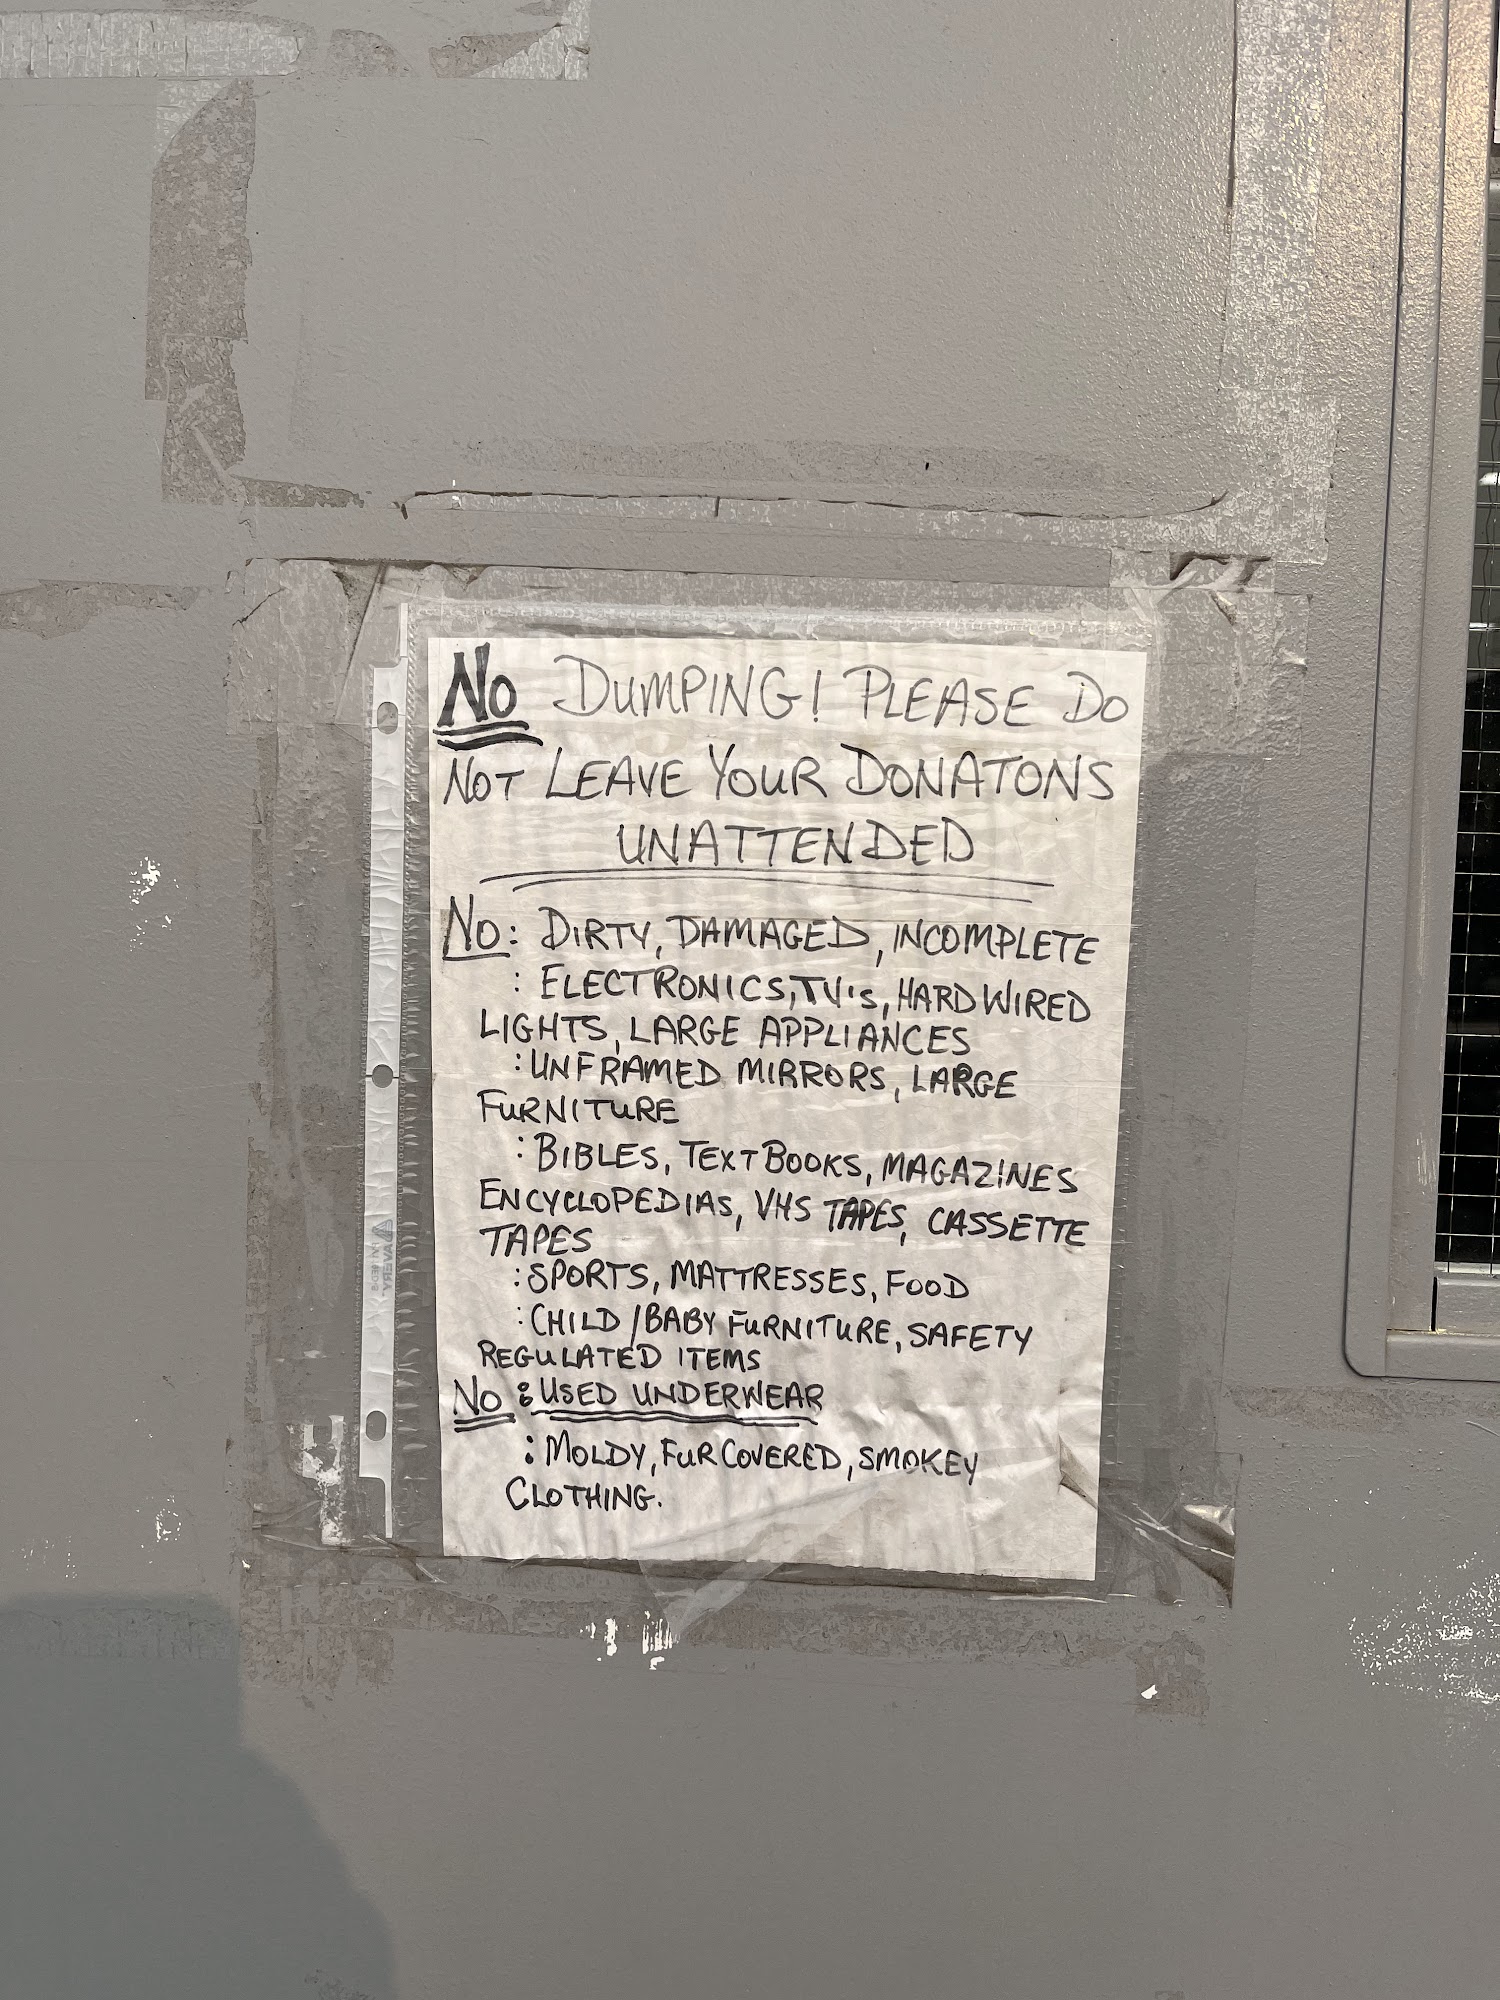 No DUMPING! PLEASE DO
NOT LEAVE YOUR DONATONS
UNATTENDED
NO: DIRTY, DAMAGED, INCOMPLETE
: ELECTRONICS, TV's, HARDWIRED
LIGHTS, LARGE APPLIANCES
: UNFRAMED MIRRORS, LARGE
FURNITURE
: BIBLES, TEXTBOOKS, MAGAZINES
ENCYCLOPEDIAS, VHS TAPES, CASSETTE
TAPES
: SPORTS, MATTRESSES, FOOD
: CHILD/BABY FURNITURE, SAFETY
REGULATED ITEMS
NO : USED UNDERWEAR
: MOLDY, FUR COVERED, SMOKEY
CLOTHING.
AVERY